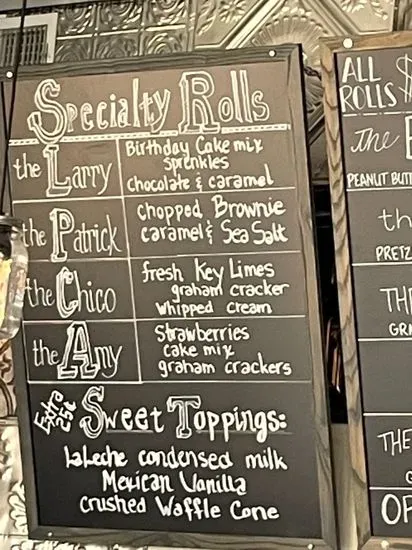 Specialty Rolls
the Larry
Birthday Cake mix
sprenkles
chocolate & caramel
the Patrick
chopped Brownie
caramel & Sea Salt
the Chico
fresh Key Limes
graham cracker
whipped cream
the Amy
Strawberries
cake mix
graham crackers
Extra
25¢
Sweet Toppings:
LaLeche condensed milk
Mexican Vanilla
crushed Waffle Cone
ALL
ROLLS $
The
PEANUT BUT
th
PRETZ
TH
GR
THE
OF